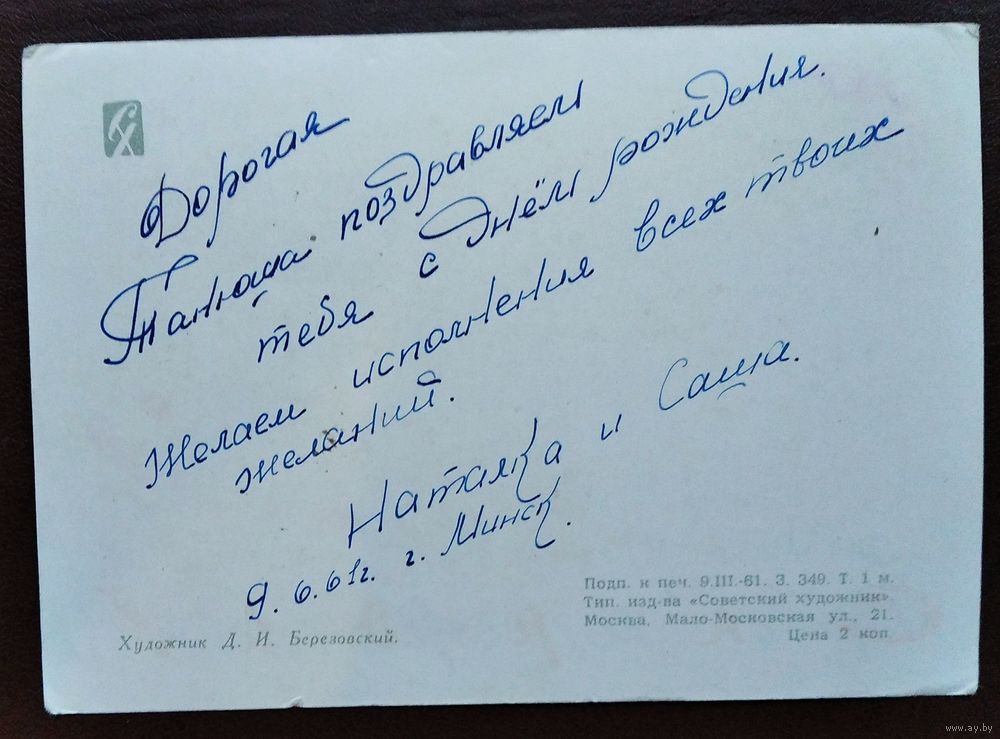 СХ
Дорогая
Танюша поздравляем
тебя с Днём рождения.
Желаем исполнения всех твоих
желаний.
Наталка и Саша.
9.6.61г. г. Минск.
Художник Д. И. Березовский.
Подп. к печ. 9.III.-61. З. 349. Т. 1 м.
Тип. изд-ва «Советский художник».
Москва, Мало-Московская ул., 21.
Цена 2 коп.
www.ay.by